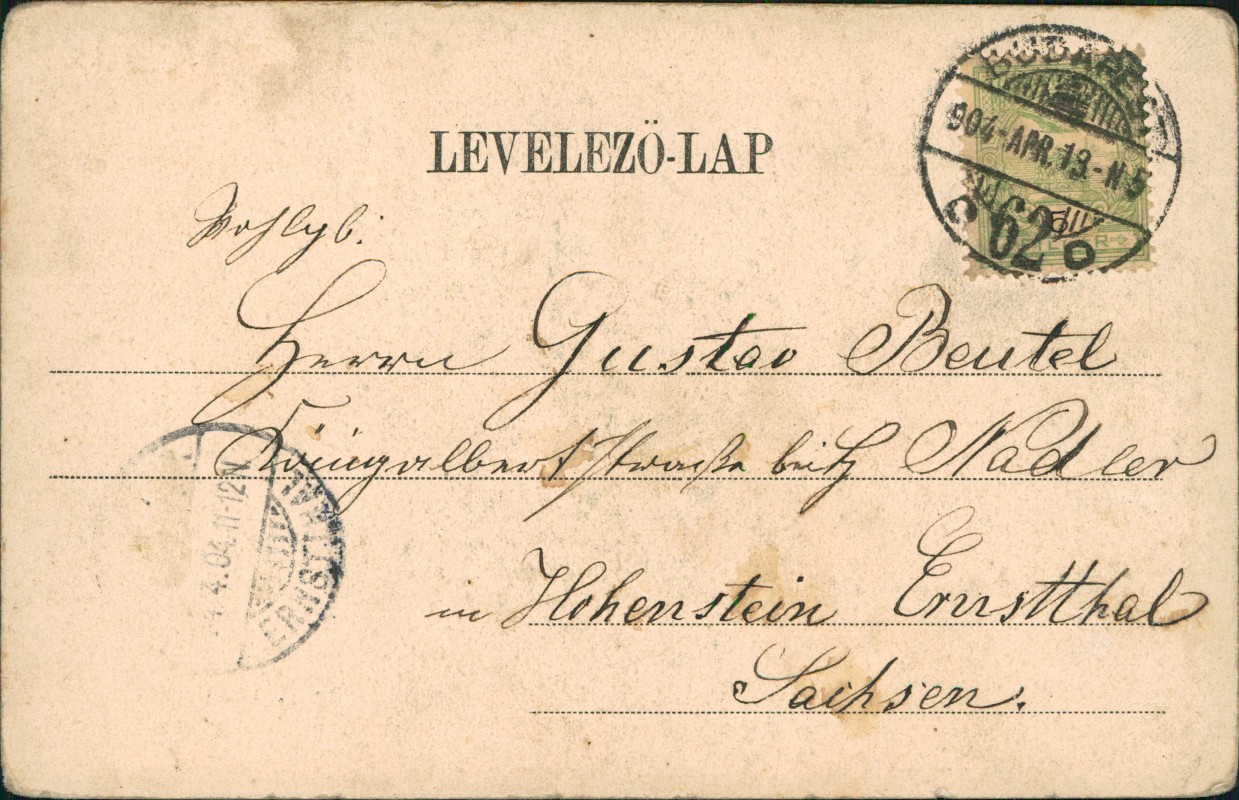 LEVELEZŐ-LAP
BUDAPEST
904-APR.13.-N5
62
5
Wohlgb.
Herrn Gustav Beutel
Königalbertstraße Nadler
in Hohenstein Ernstthal
Sachsen.
4.04.11-12N
ERNSTTHAL